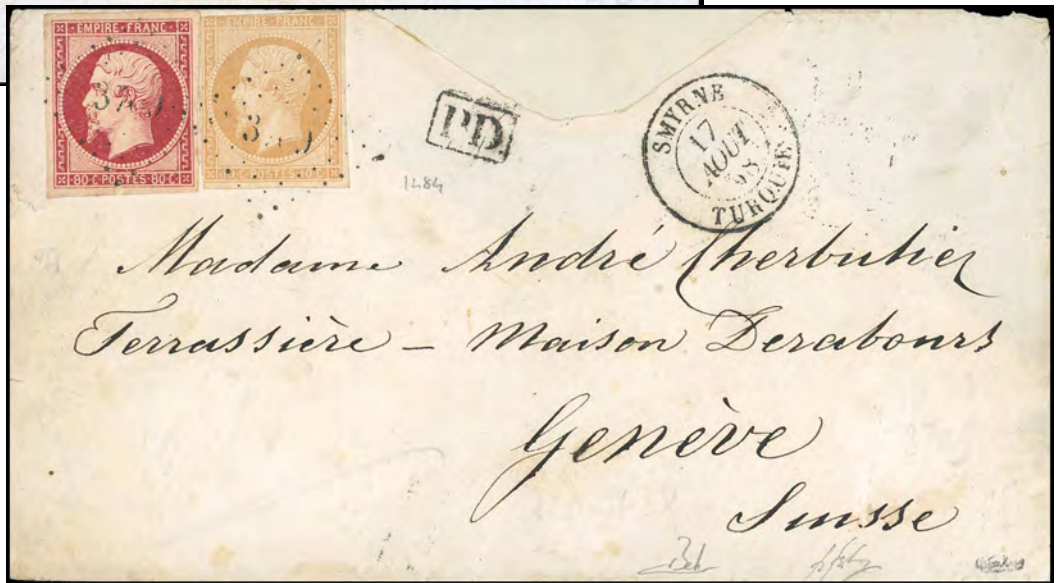 EMPIRE·FRANC·
80·C·POSTES·80·C·
EMPIRE·FRANC·
10·C·POSTES·10·C·
PD.
SMYRNE
17
AOUT
58
TURQUIE
1484
Madame André Cherbuliez
Terrassière – Maison Derabours
Genève
Suisse